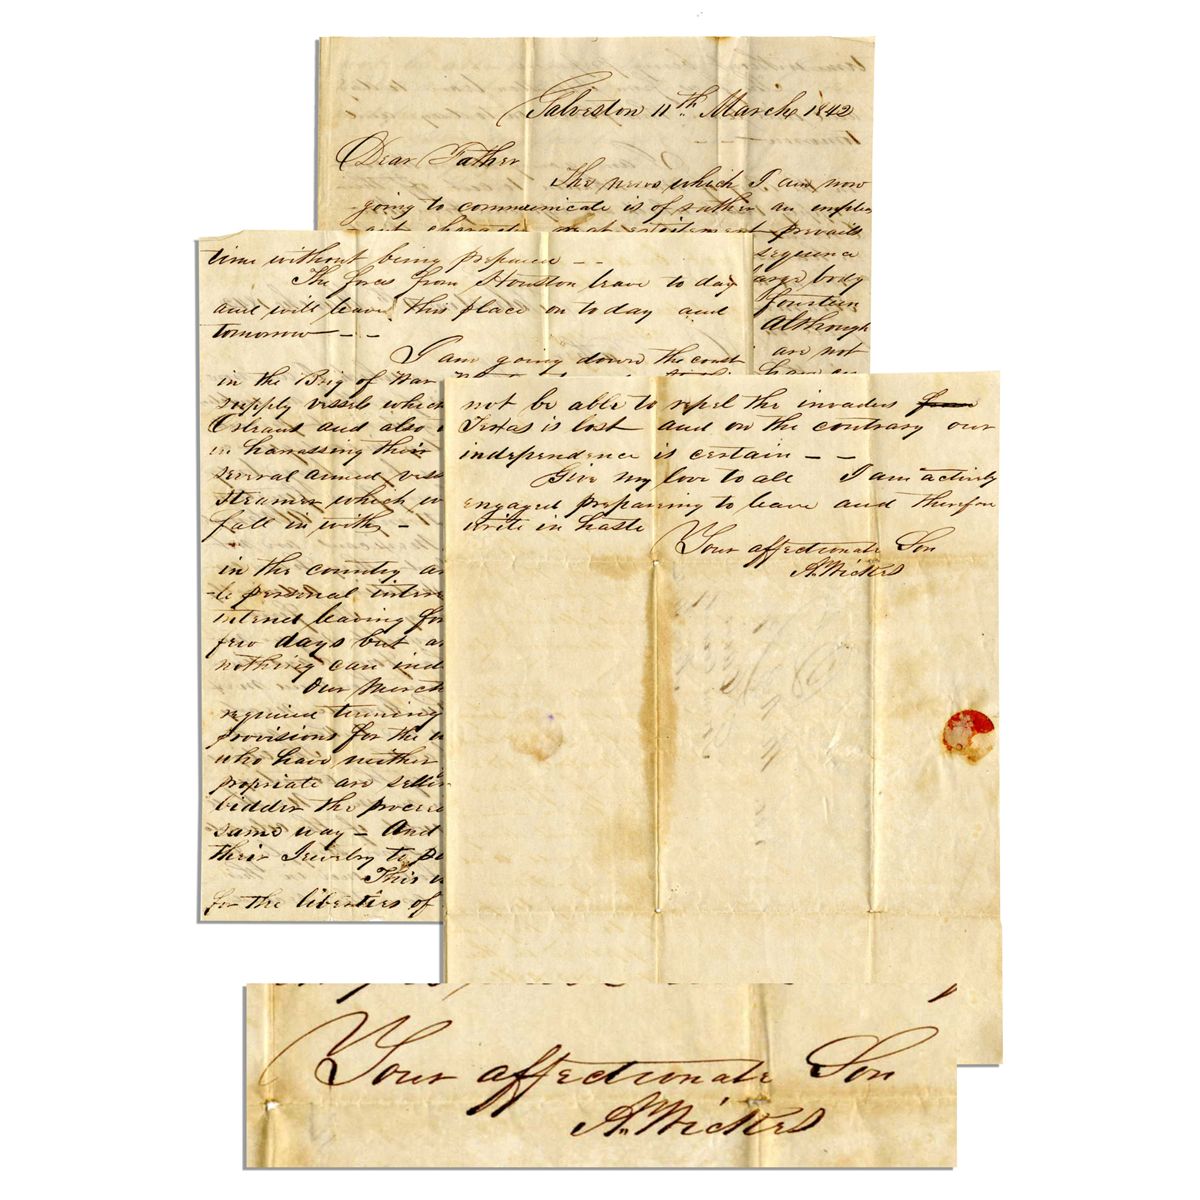 Galveston 11th March 1842
Dear Father
The news which I am now
going to communicate is of rather an unplea
ant character great excitement prevails
sequence
large body
fourteen
Although
are not
have
time without being prepared - -
The forces from Houston leave to day
and will leave this place on to day and
tomorrow - -
I am going down the coast
in the Brig of War
supply vessels which
Orleans and also
in harrassing their
several armed vess
Steamer which w
fall in with -
in the country a
-le personal inter
intend leaving for
few days but a
nothing can ind
Our Merch
required turning
provisions for the
who have neither
propriate are sellin
bidder the procee
same way - And
their Jewelry to p
This
for the liberties of
not be able to repel the invaders
Texas is lost and on the contrary our
independence is certain - -
Give my love to all I am actively
engaged preparing to leave and therefore
write in haste
Your affectionate Son
A. Wickes
Your affectionate Son
A. Wickes